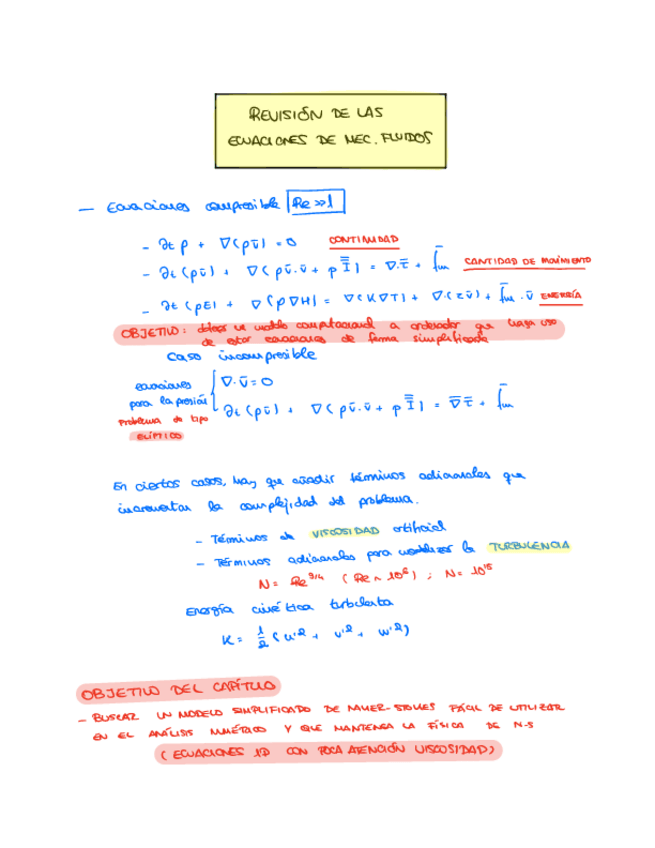 REVISIÓN DE LAS
ECUACIONES DE MEC. FLUIDOS
— Ecuaciones compresible Re >> 1
- ∂t ρ + ∇(ρū) = 0 CONTINUIDAD
- ∂t (ρū) + ∇(ρū·ū + p Ī̄) = ∇·τ̄ + f̄m CANTIDAD DE MOVIMIENTO
- ∂t (ρE) + ∇(ρ∇H) = ∇(K∇T) + ∇·(τū) + f̄m · ū ENERGÍA
OBJETIVO: un modelo computacional a ordenador que haga uso
de estas ecuaciones de forma simplificada
Caso incompresible
ecuaciones
para la presión
Problema de tipo
ELÍPTICO
∇·ū = 0
∂t (ρū) + ∇(ρū·ū + p Ī̄) = ∇̄τ̄ + f̄m
En ciertos casos, hay que añadir términos adicionales que
incrementan la complejidad del problema.
- Términos de VISCOSIDAD artificial
- Términos adicionales para modelizar la TURBULENCIA
N = Re^9/4 (Re ~ 10^6) ; N = 10^15
Energía cinética turbulenta
K = 1/2 (u'² + v'² + w'²)
OBJETIVO DEL CAPÍTULO
- BUSCAR UN MODELO SIMPLIFICADO DE NAVIER-STOKES FÁCIL DE UTILIZAR
EN EL ANÁLISIS NUMÉRICO Y QUE MANTENGA LA FÍSICA DE N-S
(ECUACIONES 1D CON POCA ATENCIÓN VISCOSIDAD)